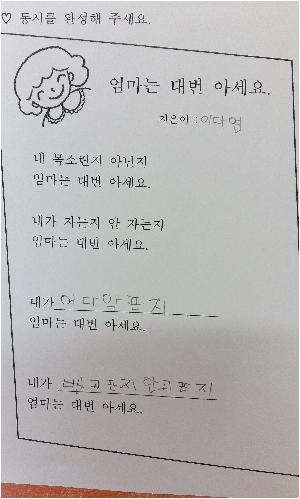 ♡ 동시를 완성해 주세요.
엄마는 대번 아세요.
지은이 : 이다엽
내 목소린지 아닌지
엄마는 대번 아세요.
내가 자는지 안 자는지
엄마는 대번 아세요.
내가 어디 아픈지
엄마는 대번 아세요.
내가 배고픈지 안고픈지
엄마는 대번 아세요.